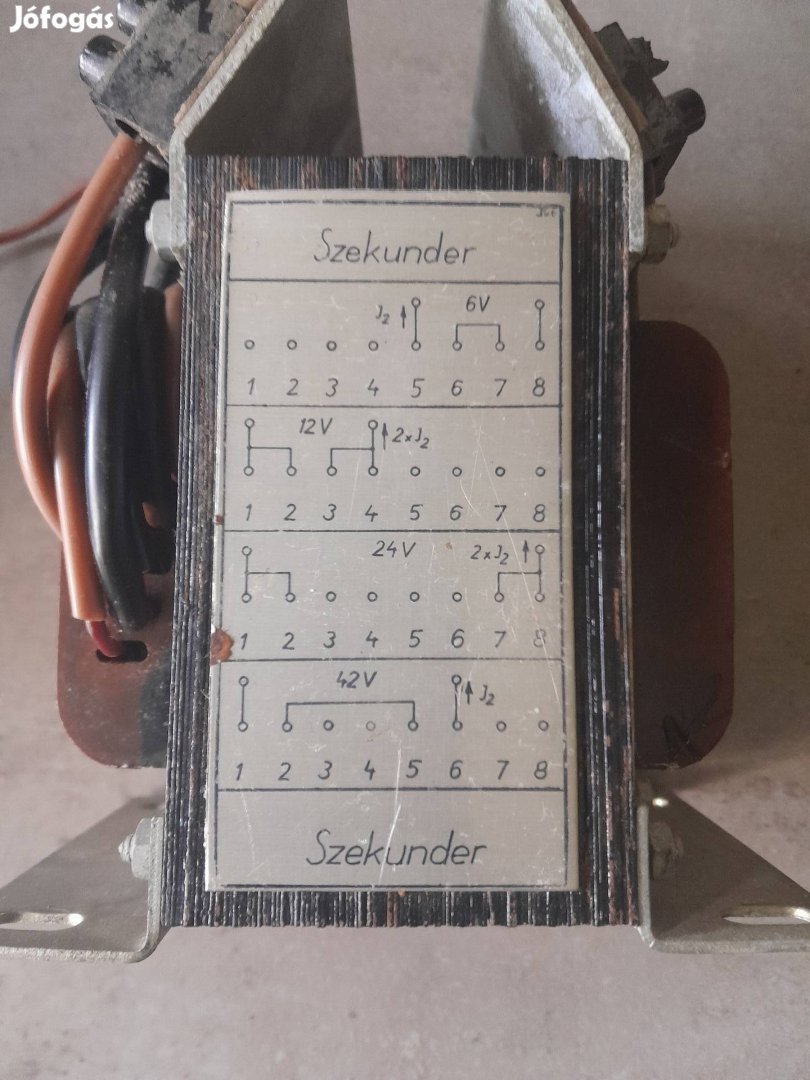 Jófogás
Szekunder
J₂ 6V
1 2 3 4 5 6 7 8
12V 2xJ₂
1 2 3 4 5 6 7 8
24V 2xJ₂
1 2 3 4 5 6 7 8
42V J₂
1 2 3 4 5 6 7 8
Szekunder